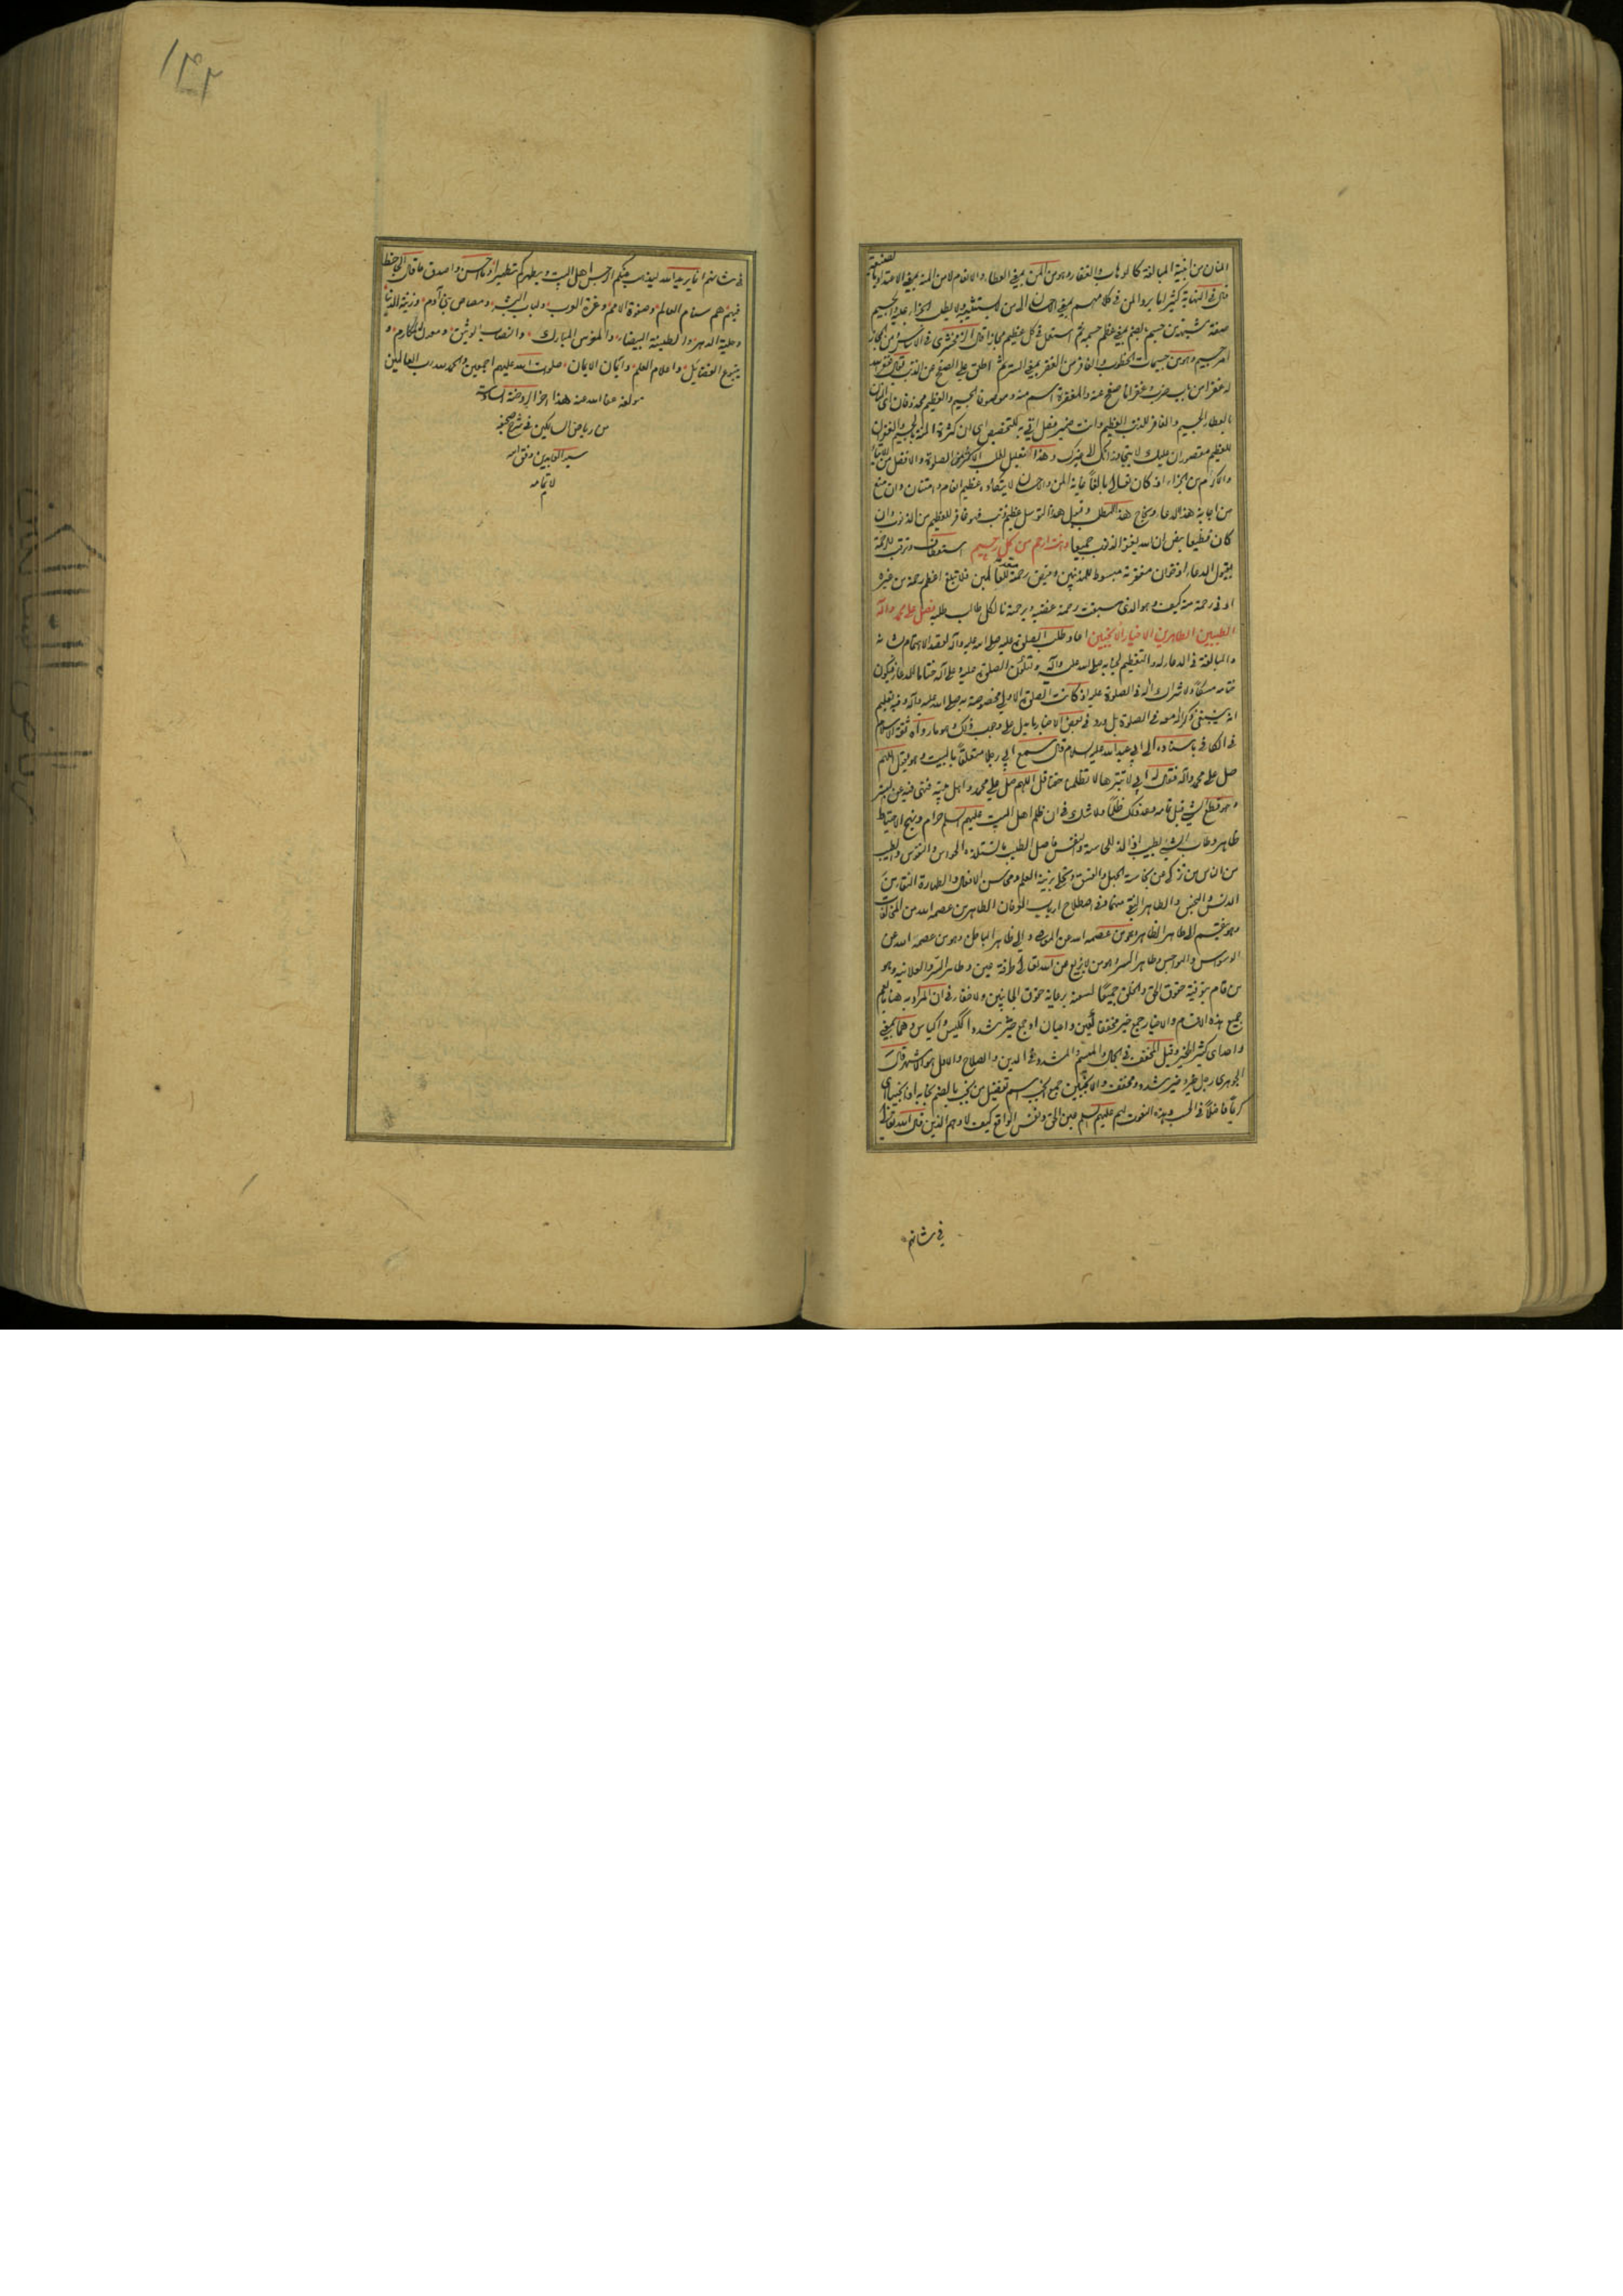 المنان من ابنية المبالغة كالوهاب والغفار وهو من المن بمعنى العطاء والانعام لا من المنة بمعنى الاعتداد بالصنيعة
قال في النهاية كثيرا ما يرد المن في كلامهم بمعنى الاحسان الى من لا يستثيبه ولا يطلب الجزاء عليه والجسيم
صفة مشبهة من جسم بالضم بمعنى عظم جسمه ثم استعمل في كل عظيم مجازا قال الزمخشري في الاساس ومن المجاز
امر جسيم وهو من جسيمات الخطوب والغافر من الغفر بمعنى الستر ثم اطلق على الصفح عن الذنب فقيل غفر الله
له غفرا من باب ضرب وغفرانا صفح عنه والمغفرة اسم منه وموصوفا الجسيم والعظيم محذوفان اى المنان
بالعطاء الجسيم والغافر للذنب العظيم وانت ضمير فصل اتى به للتخصيص اى ان كثرة المن بالجسيم والغفران
للعظيم مقصوران عليك لا يتجاوزانك الى غيرك وهذا تعليل لطلب الاكثر من الصلوة والافضل من
والاكرم من الجزاء اذ كان تعالى بالغا غاية المن والاحسان لا يتعاوده عظيم انعام وامتنان وان منع
من اجابة هذا الدعاء ونجح هذا المطلب وقبول هذا التوسل عظيم ذنب فهو غافر للعظيم من الذنوب وان
كان فظيعا بنص ان الله يغفر الذنوب جميعا وانت ارحم من كل رحيم استعطاف وترقب للرحمة
بقبول الدعاء اذ خوان مغفرته مبسوط للمذنبين وفيض رحمته للعالمين فلا تبلغ اعظم رحمة من غيره
ادنى رحمة منه كيف وهو الذى سبقت رحمته غضبه وبرحمته نال كل طالب طلبه فصل على محمد وآله
الطيبين الطاهرين الاخيار الانجبين اعاد طلب الصلوة عليه صلى الله عليه وآله لقصد الاهتمام بشانه
والمبالغة في الدعاء له والتعظيم لجنابه صلى الله عليه وآله ولتكون الصلوة عليه وعلى آله ختاما للدعاء فيكون
ختامه مسكا ولاشراك آله في الصلوة عليه اذ كانت الصلوة الاولى مخصوصة به صلى الله عليه وآله وفيه تعليم
انه ينبغي ذكر آله معه في الصلوة بل ورد في بعض الاخبار ما يدل على وجوب ذلك وهو ما رواه ثقة الاسلام
في الكافي باسناده الى ابي عبد الله عليه السلام قال سمع ابي رجلا متعلقا بالبيت وهو يقول اللهم
صل على محمد وآله فقال له ابي لا تبترها لا تظلمنا حقنا قل اللهم صل على محمد واهل بيته فنهى فيه عن البتر
وهو قطع الشيء قبل تمامه وعد ذلك ظلما ولا شك في ان ظلم اهل البيت عليهم السلم حرام ونهج الاحتياط
ظاهر وطاب الشيء يطيب اذا لذ للحاسة والنفس فاصل الطيب ما تستلذه الحواس والنفوس والطيب
من الناس من زكى من نجاسة الجهل والفسق وتحلى بزينة العلم ومحاسن الافعال والطهارة النقاء من
الدنس والنجس والطاهر النقي منهما وفي اصطلاح ارباب العرفان الطاهر من عصمه الله من المخالفات
وهو ينقسم الى طاهر الظاهر وهو من عصمه الله من المعاصي والى طاهر الباطن وهو من عصمه الله من
الوسواس والهواجس وطاهر السر وهو من لا يزيغ عن الله تعالى طرفة عين وطاهر السر والعلانية وهو
من قام بتوفية حقوق الحق والخلق جميعا لسعته برعاية حقوق الجانبين ولا خفاء في ان المراد به هنا ما يعم
جميع هذه الاقسام والاخيار جمع خير مخففا كعين واعيان او جمع خير مشددا ككيس واكياس وهما بمعنى
واحد اى كثير الخير وقيل المخفف في الجمال والميسم والمشدد في الدين والصلاح والاول هو الاشهر قال
الجوهري رجل خير وخير مشدد ومخفف والانجبين جمع انجب اسم تفضيل من نجب بالضم نجابة اذا كان نجيبا اى
كريما فاضلا في الحسب وهذه النعوت لهم عليهم السلم عين الحق ونفس الواقع كيف لا وهم الذين قال الله تعالى
في شانهم
في شانهم انما يريد الله ليذهب عنكم الرجس اهل البيت ويطهركم تطهيرا وما احسن واصدق ما قال الجاحظ
فيهم هم سنام العالم وصفوة الامم وغرة العرب ولباب البشر ومصاص بني آدم وزينة الدنيا
وحلية الدهر والطينة البيضاء والمغرس المبارك والنصاب الوثيق ومعدن المكارم و
ينبوع الفضائل واعلام العلم وايمان الايمان صلوات الله عليهم اجمعين والحمد لله رب العالمين
مولفه عفا الله عنه هذا اخر الروضة السادسة
من رياض السالكين في شرح صحيفة
سيد العابدين وفق الله
لاتمامه
م